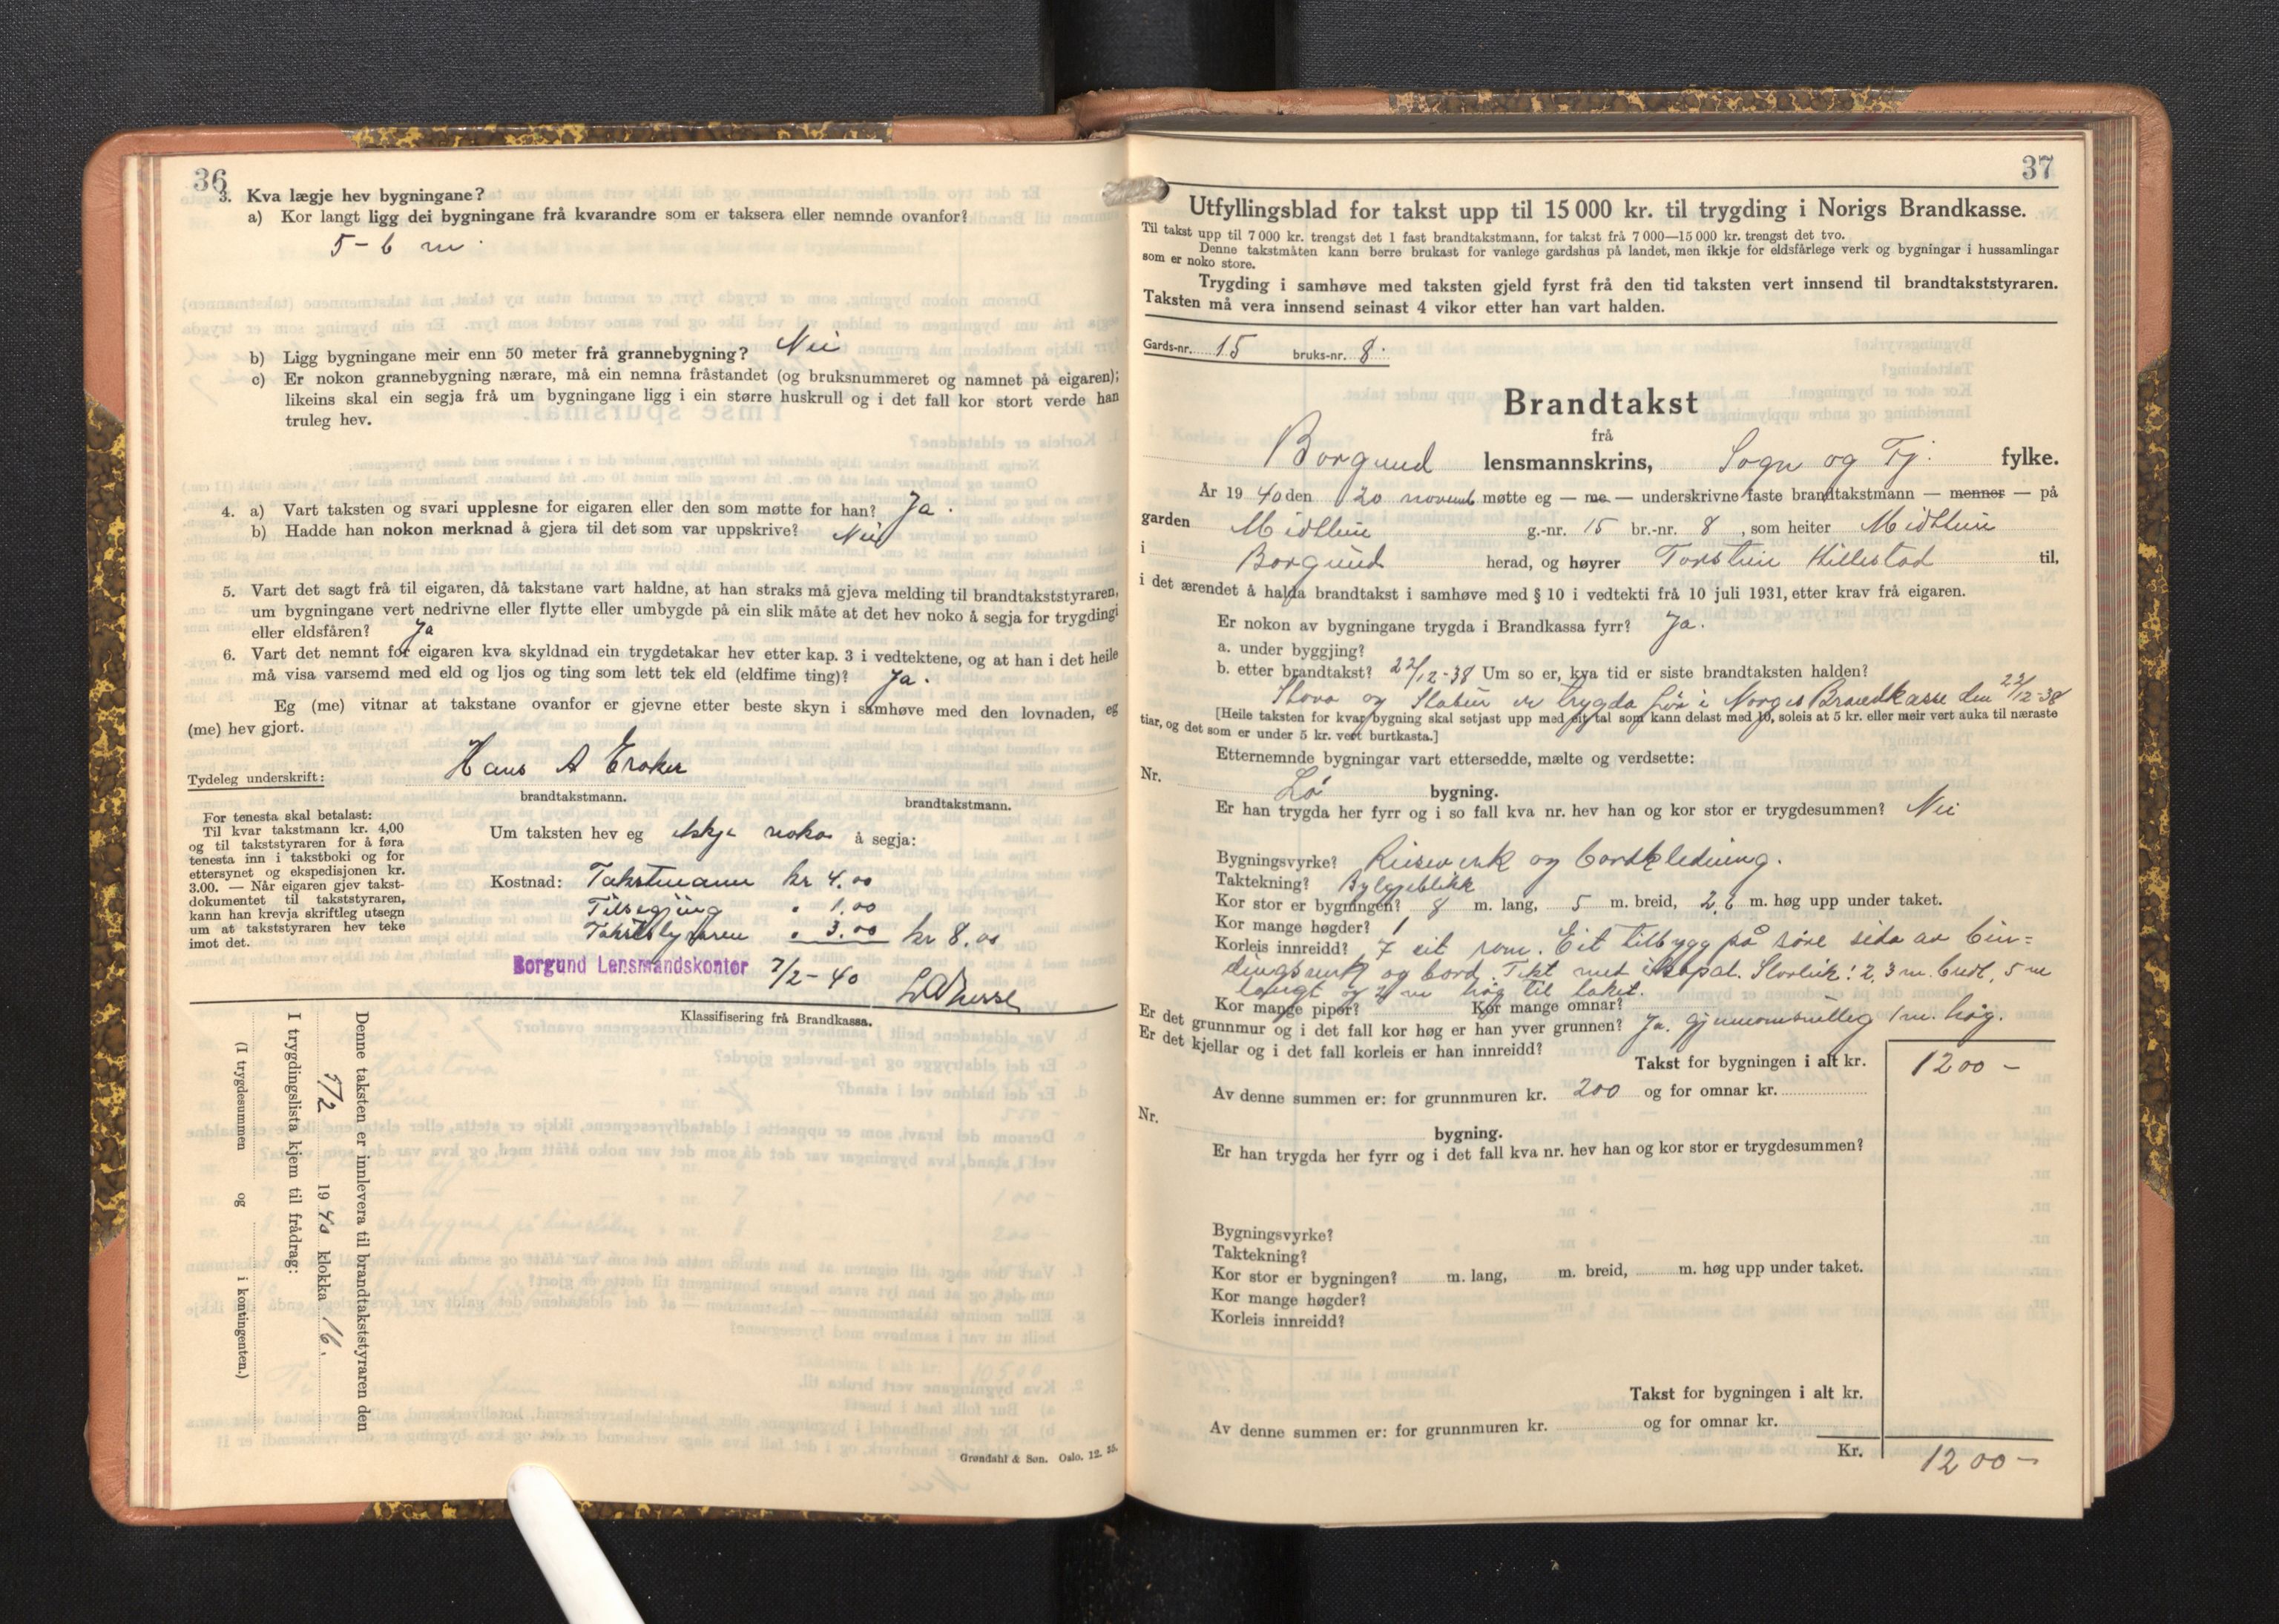 36
3. Kva lægje hev bygningane?
a) Kor langt ligg dei bygningane frå kvarandre som er taksera eller nemnde ovanfor?
5-6 m.
b) Ligg bygningane meir enn 50 meter frå grannebygning? Nei
c) Er nokon grannebygning nærare, må ein nemna fråstandet (og bruksnummeret og namnet på eigaren);
likeins skal ein segja frå um bygningane ligg i ein større huskrull og i det fall kor stort verde han
truleg hev.
4. a) Vart taksten og svari upplesne for eigaren eller den som møtte for han? Ja.
b) Hadde han nokon merknad å gjera til det som var uppskrive? Nei
5. Vart det sagt frå til eigaren, då takstane vart haldne, at han straks må gjeva melding til brandtakststyraren,
um bygningane vert nedrivne eller flytte eller umbygde på ein slik måte at det hev noko å segja for trygdingi
eller eldsfåren? Ja
6. Vart det nemnt for eigaren kva skyldnad ein trygdetakar hev etter kap. 3 i vedtektene, og at han i det heile
må visa varsemd med eld og ljos og ting som lett tek eld (eldfime ting)? Ja.
Eg (me) vitnar at takstane ovanfor er gjevne etter beste skyn i samhøve med den lovnaden, eg
(me) hev gjort.
Tydeleg underskrift: Hans A Eraker
brandtakstmann. brandtakstmann.
For tenesta skal betalast:
Til kvar takstmann kr. 4,00
og til takststyraren for å føra
tenesta inn i takstboki og for
ettersynet og ekspedisjonen kr.
3.00. — Når eigaren gjev takst-
dokumentet til takststyraren,
kann han krevja skriftleg utsegn
um at takststyraren hev teke
imot det.
Um taksten hev eg ikkje noko å segja:
Kostnad: Takstmann kr 4.00
Tilsegjing " 1.00
Takststyraren " 3.00 kr 8.00
Borgund Lensmandskontor 7/2-40
Klassifisering frå Brandkassa.
Denne taksten er innlevera til brandtakststyraren den
5/2 1940 klokka 16.
I trygdingslista kjem til frådrag:
(I trygdesummen og i kontingenten.)
Grøndahl & Søn. Oslo. 12. 35.
37
Utfyllingsblad for takst upp til 15 000 kr. til trygding i Norigs Brandkasse.
Til takst upp til 7 000 kr. trengst det 1 fast brandtakstmann, for takst frå 7 000—15 000 kr. trengst det tvo.
Denne takstmåten kann berre brukast for vanlege gardshus på landet, men ikkje for eldsfårlege verk og bygningar i hussamlingar
som er noko store.
Trygding i samhøve med taksten gjeld fyrst frå den tid taksten vert innsend til brandtakststyraren.
Taksten må vera innsend seinast 4 vikor etter han vart halden.
Gards-nr. 15 bruks-nr. 8.
Brandtakst
frå
Borgund lensmannskrins, Sogn og Fj. fylke.
År 1940 den 20 novemb møtte eg — me — underskrivne faste brandtakstmann — menner — på
garden Midtlien g.-nr. 15 br.-nr. 8, som heiter Midtlien
i Borgund herad, og høyrer Torstein Hillestad til,
i det ærendet å halda brandtakst i samhøve med § 10 i vedtekti frå 10 juli 1931, etter krav frå eigaren.
Er nokon av bygningane trygda i Brandkassa fyrr? Ja.
a. under byggjing?
b. etter brandtakst? 22/12-38 Um so er, kva tid er siste brandtaksten halden?
Stova og Stabur er trygda før i Norges Brandkasse den 22/12-38
[Heile taksten for kvar bygning skal setjast upp med eit tal som kann delast med 10, soleis at 5 kr. eller meir vert auka til næraste
tiar, og det som er under 5 kr. vert burtkasta.]
Etternemnde bygningar vart ettersedde, mælte og verdsette:
Nr. Lø bygning.
Er han trygda her fyrr og i so fall kva nr. hev han og kor stor er trygdesummen? Nei
Bygningsvyrke? Reisverk og bordkledning.
Taktekning? Bylgjeblikk
Kor stor er bygningen? 8 m. lang, 5 m. breid, 2,6 m. høg upp under taket.
Kor mange høgder? 1
Korleis innreidd? I eit rom. Eit tilbygg på søre sida av bin=
dingsverk og bord. Tekt med Storleik: 2,3 m. breidt, 5 m
langt og 2 m høg til taket.
Kor mange pipor? Kor mange omnar?
Er det grunnmur og i det fall kor høg er han yver grunnen? Ja. gjennomsnittleg 1 m. høg.
Er det kjellar og i det fall korleis er han innreidd?
Takst for bygningen i alt kr. 1200 -
Av denne summen er: for grunnmuren kr. 200 og for omnar kr.
Nr. bygning.
Er han trygda her fyrr og i det fall kva nr. hev han og kor stor er trygdesummen?
Bygningsvyrke?
Taktekning?
Kor stor er bygningen? m. lang, m. breid, m. høg upp under taket.
Kor mange høgder?
Korleis innreidd?
Takst for bygningen i alt kr.
Av denne summen er: for grunnmuren kr. og for omnar kr.
Kr. 1200 -